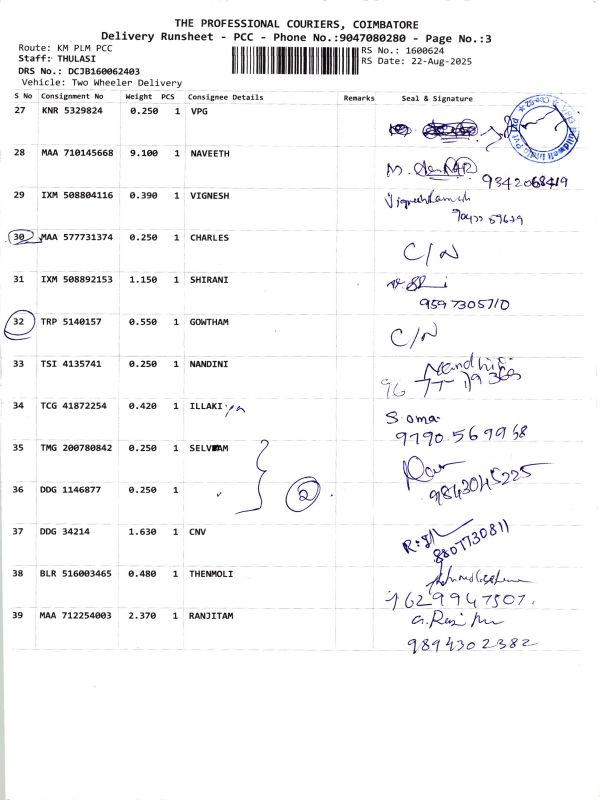 THE PROFESSIONAL COURIERS, COIMBATORE
Delivery Runsheet - PCC - Phone No.:9047080280 - Page No.:3
Route: KM PLM PCC
RS No.: 1600624
Staff: THULASI
RS Date: 22-Aug-2025
DRS No.: DCJB160062403
Vehicle: Two Wheeler Delivery
S No Consignment No Weight PCS Consignee Details Remarks Seal & Signature
27 KNR 5329824 0.250 1 VPG
28 MAA 710145668 9.100 1 NAVEETH
9342068419
29 IXM 508804116 0.390 1 VIGNESH
30 MAA 577731374 0.250 1 CHARLES C/N
31 IXM 508892153 1.150 1 SHIRANI
9597305710
32 TRP 5140157 0.550 1 GOWTHAM C/N
33 TSI 4135741 0.250 1 NANDINI
34 TCG 41872254 0.420 1 ILLAKIya S.oma
9790569968
35 TMG 200780842 0.250 1
36 DDG 1146877 0.250 1 2
9843045225
37 DDG 34214 1.630 1 CNV
8807730811
38 BLR 516003465 0.480 1 THENMOLI
9629947507.
39 MAA 712254003 2.370 1 RANJITAM
9894302382